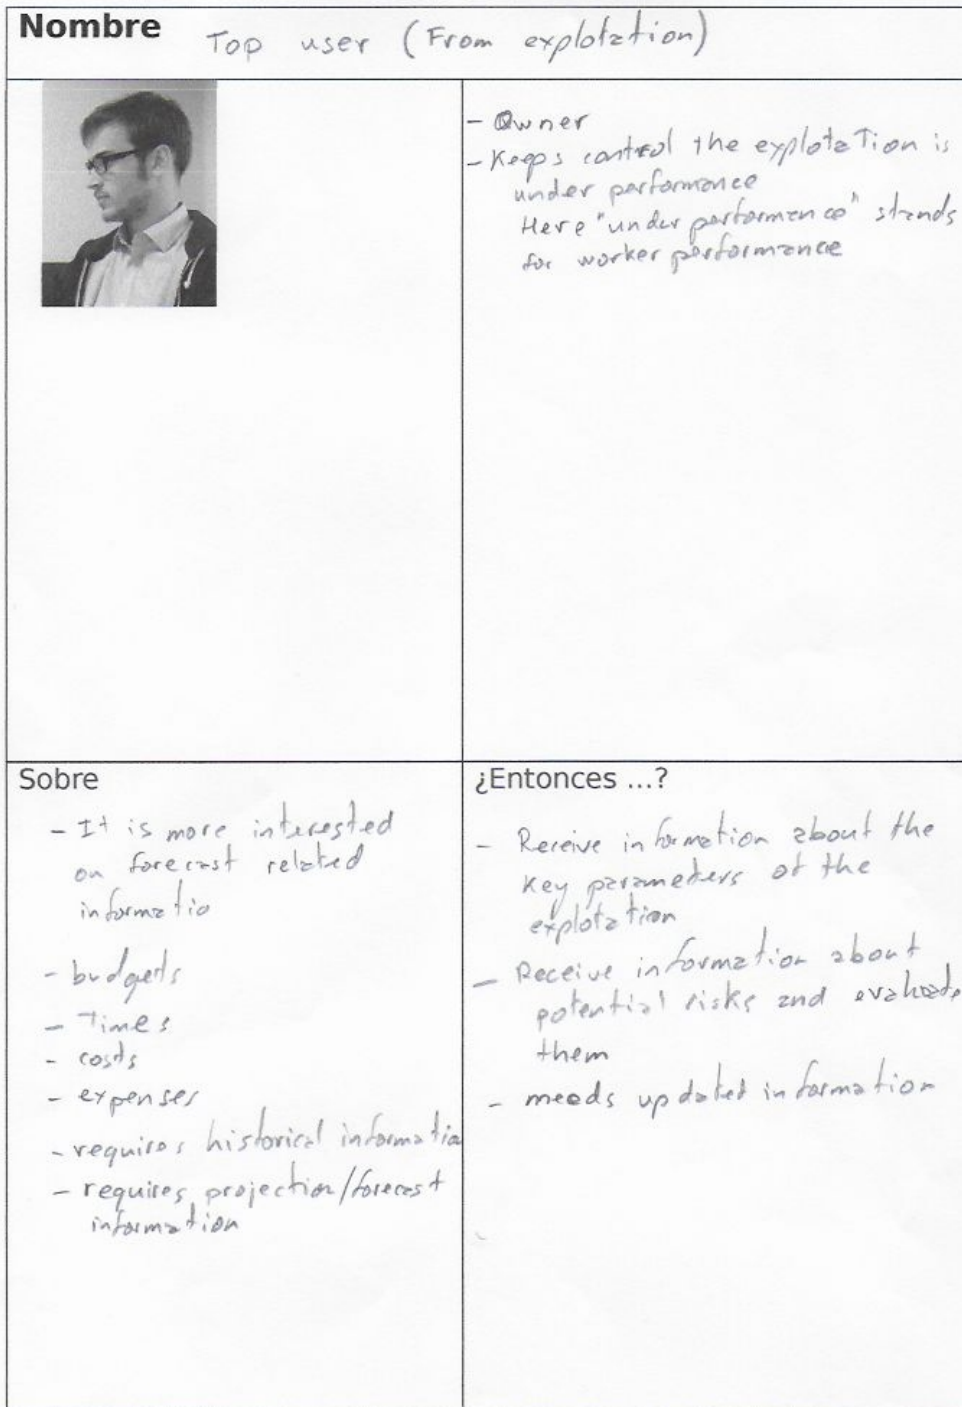 Nombre Top user (From explotation)
- Owner
- Keeps control the explotation is
under performance
Here "under performance" stands
for worker performance
Sobre
- It is more interested
on forecast related
informatio
- budgets
- Times
- costs
- expenses
- requires historical informatio
- requires projection/forecast
information
¿Entonces ...?
- Receive information about the
key parameters of the
explotation
- Receive information about
potential risks and evaluate
them
- needs updated information